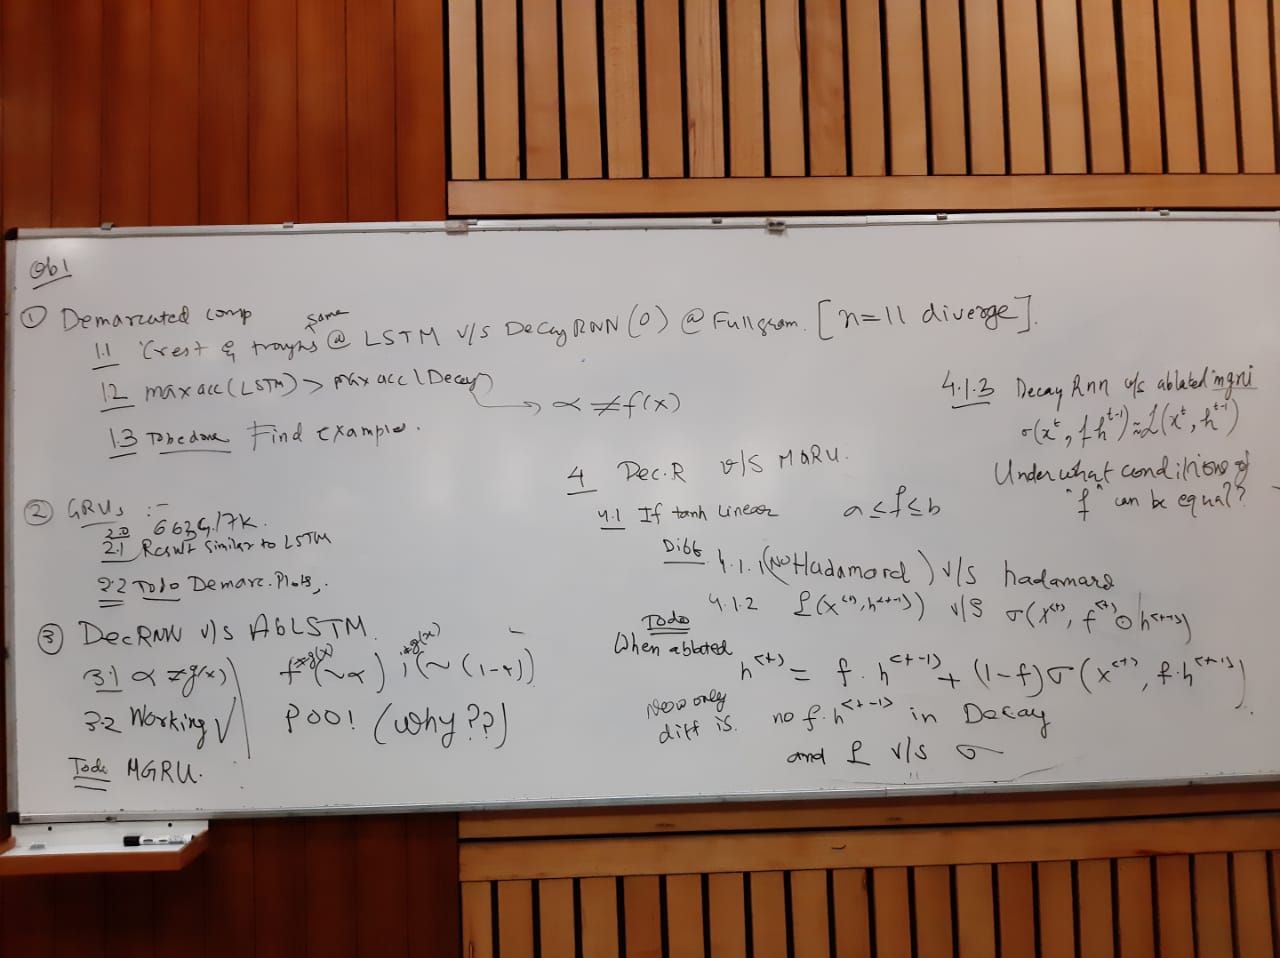 Ob1
① Demarcated comp
1.1 Crest & troughs same @ LSTM v/s DecayRNN (0) @ Fullgram. [n=11 diverge].
1.2 max acc (LSTM) > max acc (Decay) → α ≠ f(x)
1.3 To be done Find example.
② GRUs :-
2.0 663G/17K.
2.1 Result similar to LSTM
2.2 Todo Demarc. Plots,.
③ DecRNN v/s AbLSTM.
3.1 α ≠ g(x) f ≠g(x) (~α) , i ≠g(x) (~ (1-α))
3.2 Working √ POO! (Why ??)
Todo MGRU.
4 Dec.R v/s MGRU.
4.1 If tanh linear a ≤ f ≤ b
Diff 4.1.1 (No Hadamard) v/s hadamard
4.1.2 £(x<t>, h<t-1>) v/s σ(x<t>, f<t> ⊙ h<t-1>)
Todo
When ablated
h<t> = f . h<t-1> + (1-f) σ (x<t>, f.h<t-1>)
Now only
diff is. no f.h<t-1> in Decay
and £ v/s σ
4.1.3 DecayRnn v/s ablated mgru
σ(x^t, f h^t-1) ≈ £(x^t, h^t-1)
Under what conditions of
"f" can be equal?